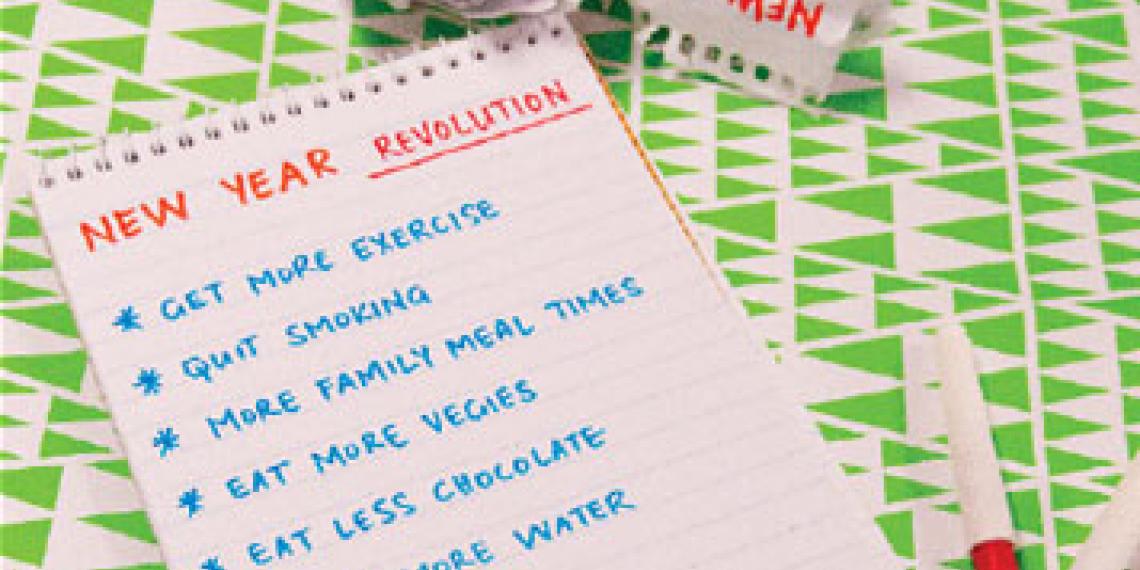 NEW
NEW YEAR REVOLUTION
* GET MORE EXERCISE
* QUIT SMOKING
* MORE FAMILY MEAL TIMES
* EAT MORE VEGIES
* EAT LESS CHOCOLATE
MORE WATER